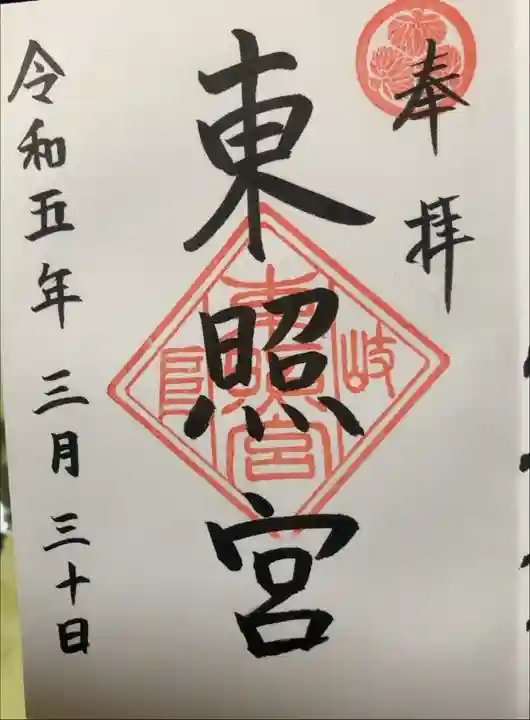 奉拝
東照宮
岐
東照宮
令和五年 三月 三十日